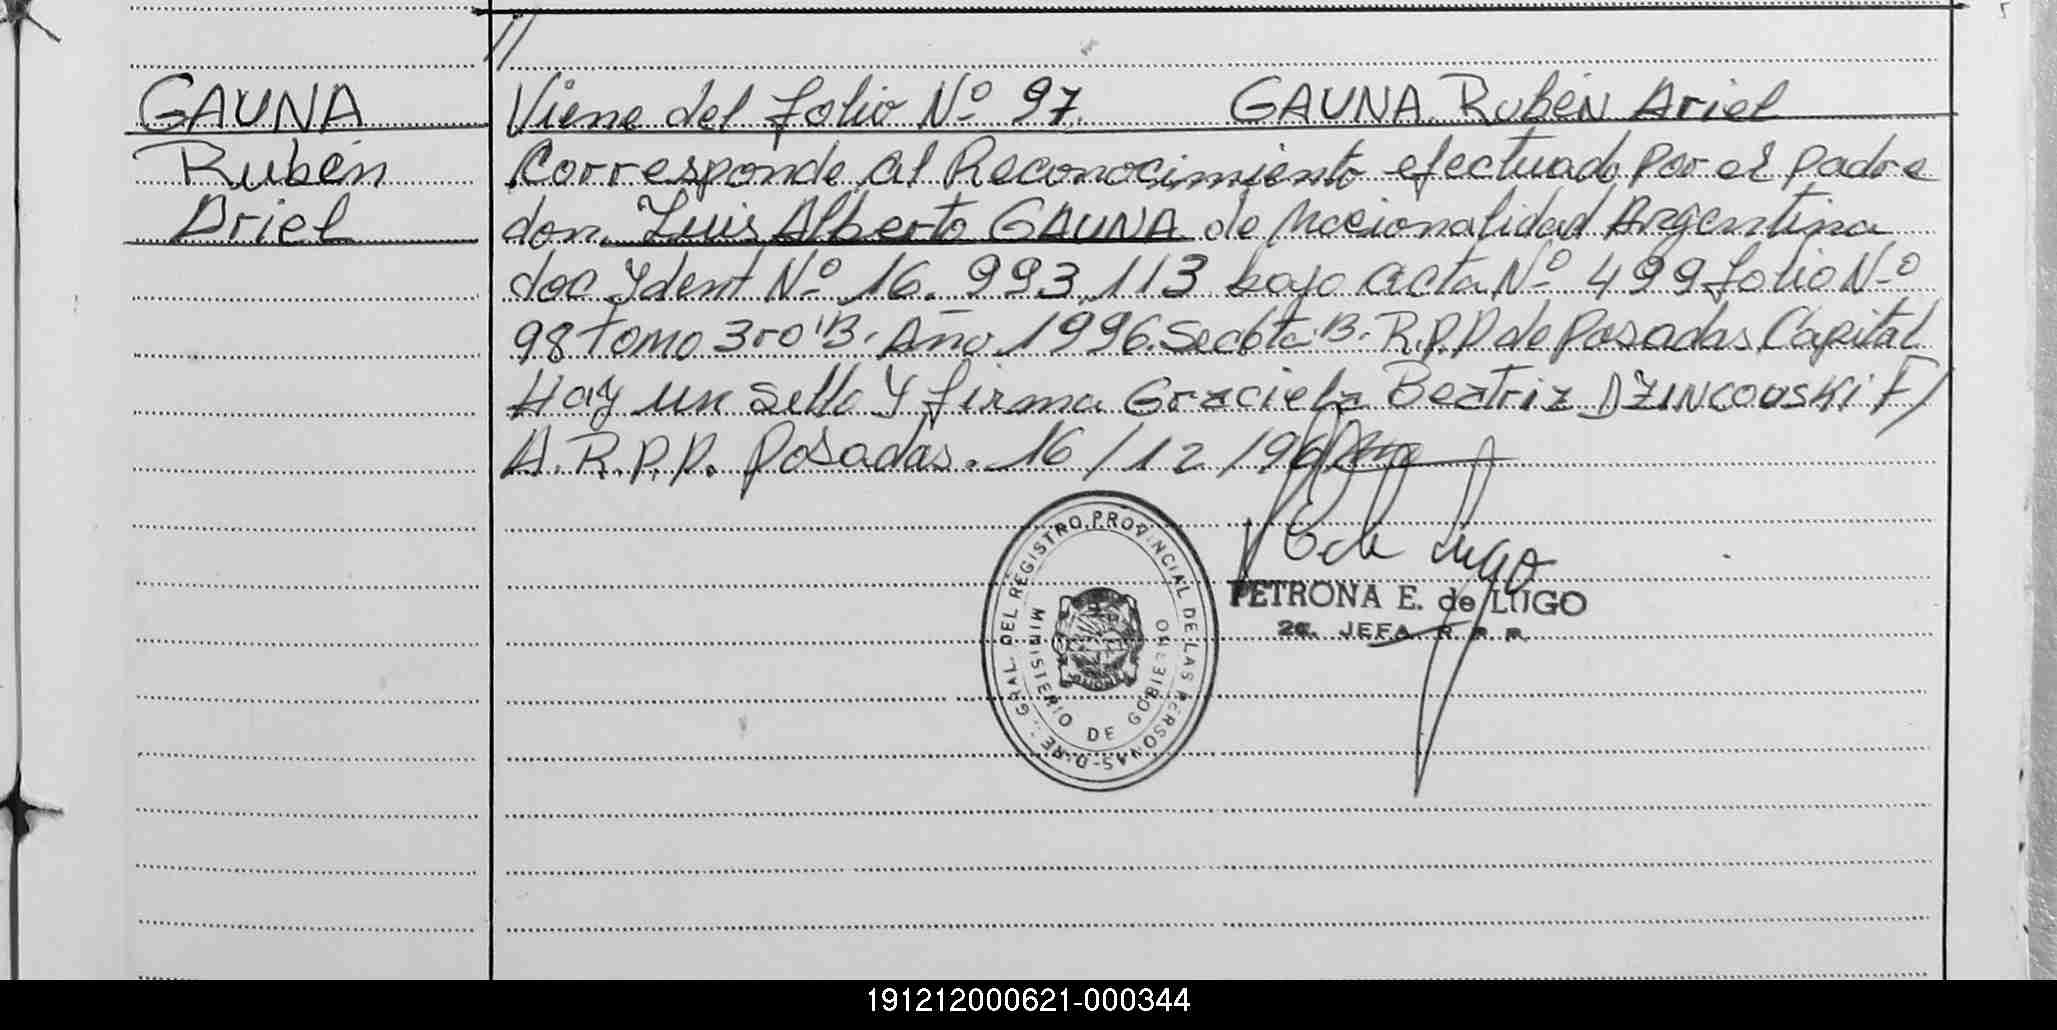 //
GAUNA
Rubén
Ariel
Viene del folio Nº 97. GAUNA Rubén Ariel
Corresponde al Reconocimiento efectuado por el padre
don. Luis Alberto GAUNA de Nacionalidad Argentina
doc Ydent Nº 16.993.113 bajo acta Nº 499 folio Nº
98 tomo 3ro "B". Año 1996. Secc 6ta B. R.P.P de Posadas Capital
Hay un sello y firma Graciela Beatriz DZINCOVSKI F/
A.R.P.P. Posadas. 16/12/96
E de Lugo
PETRONA E. de LUGO
2a. JEFA R.P.P.
DIRE. GRAL. DEL REGISTRO PROVINCIAL DE LAS PERSONAS
MINISTERIO DE GOBIERNO
MISIONES
191212000621-000344